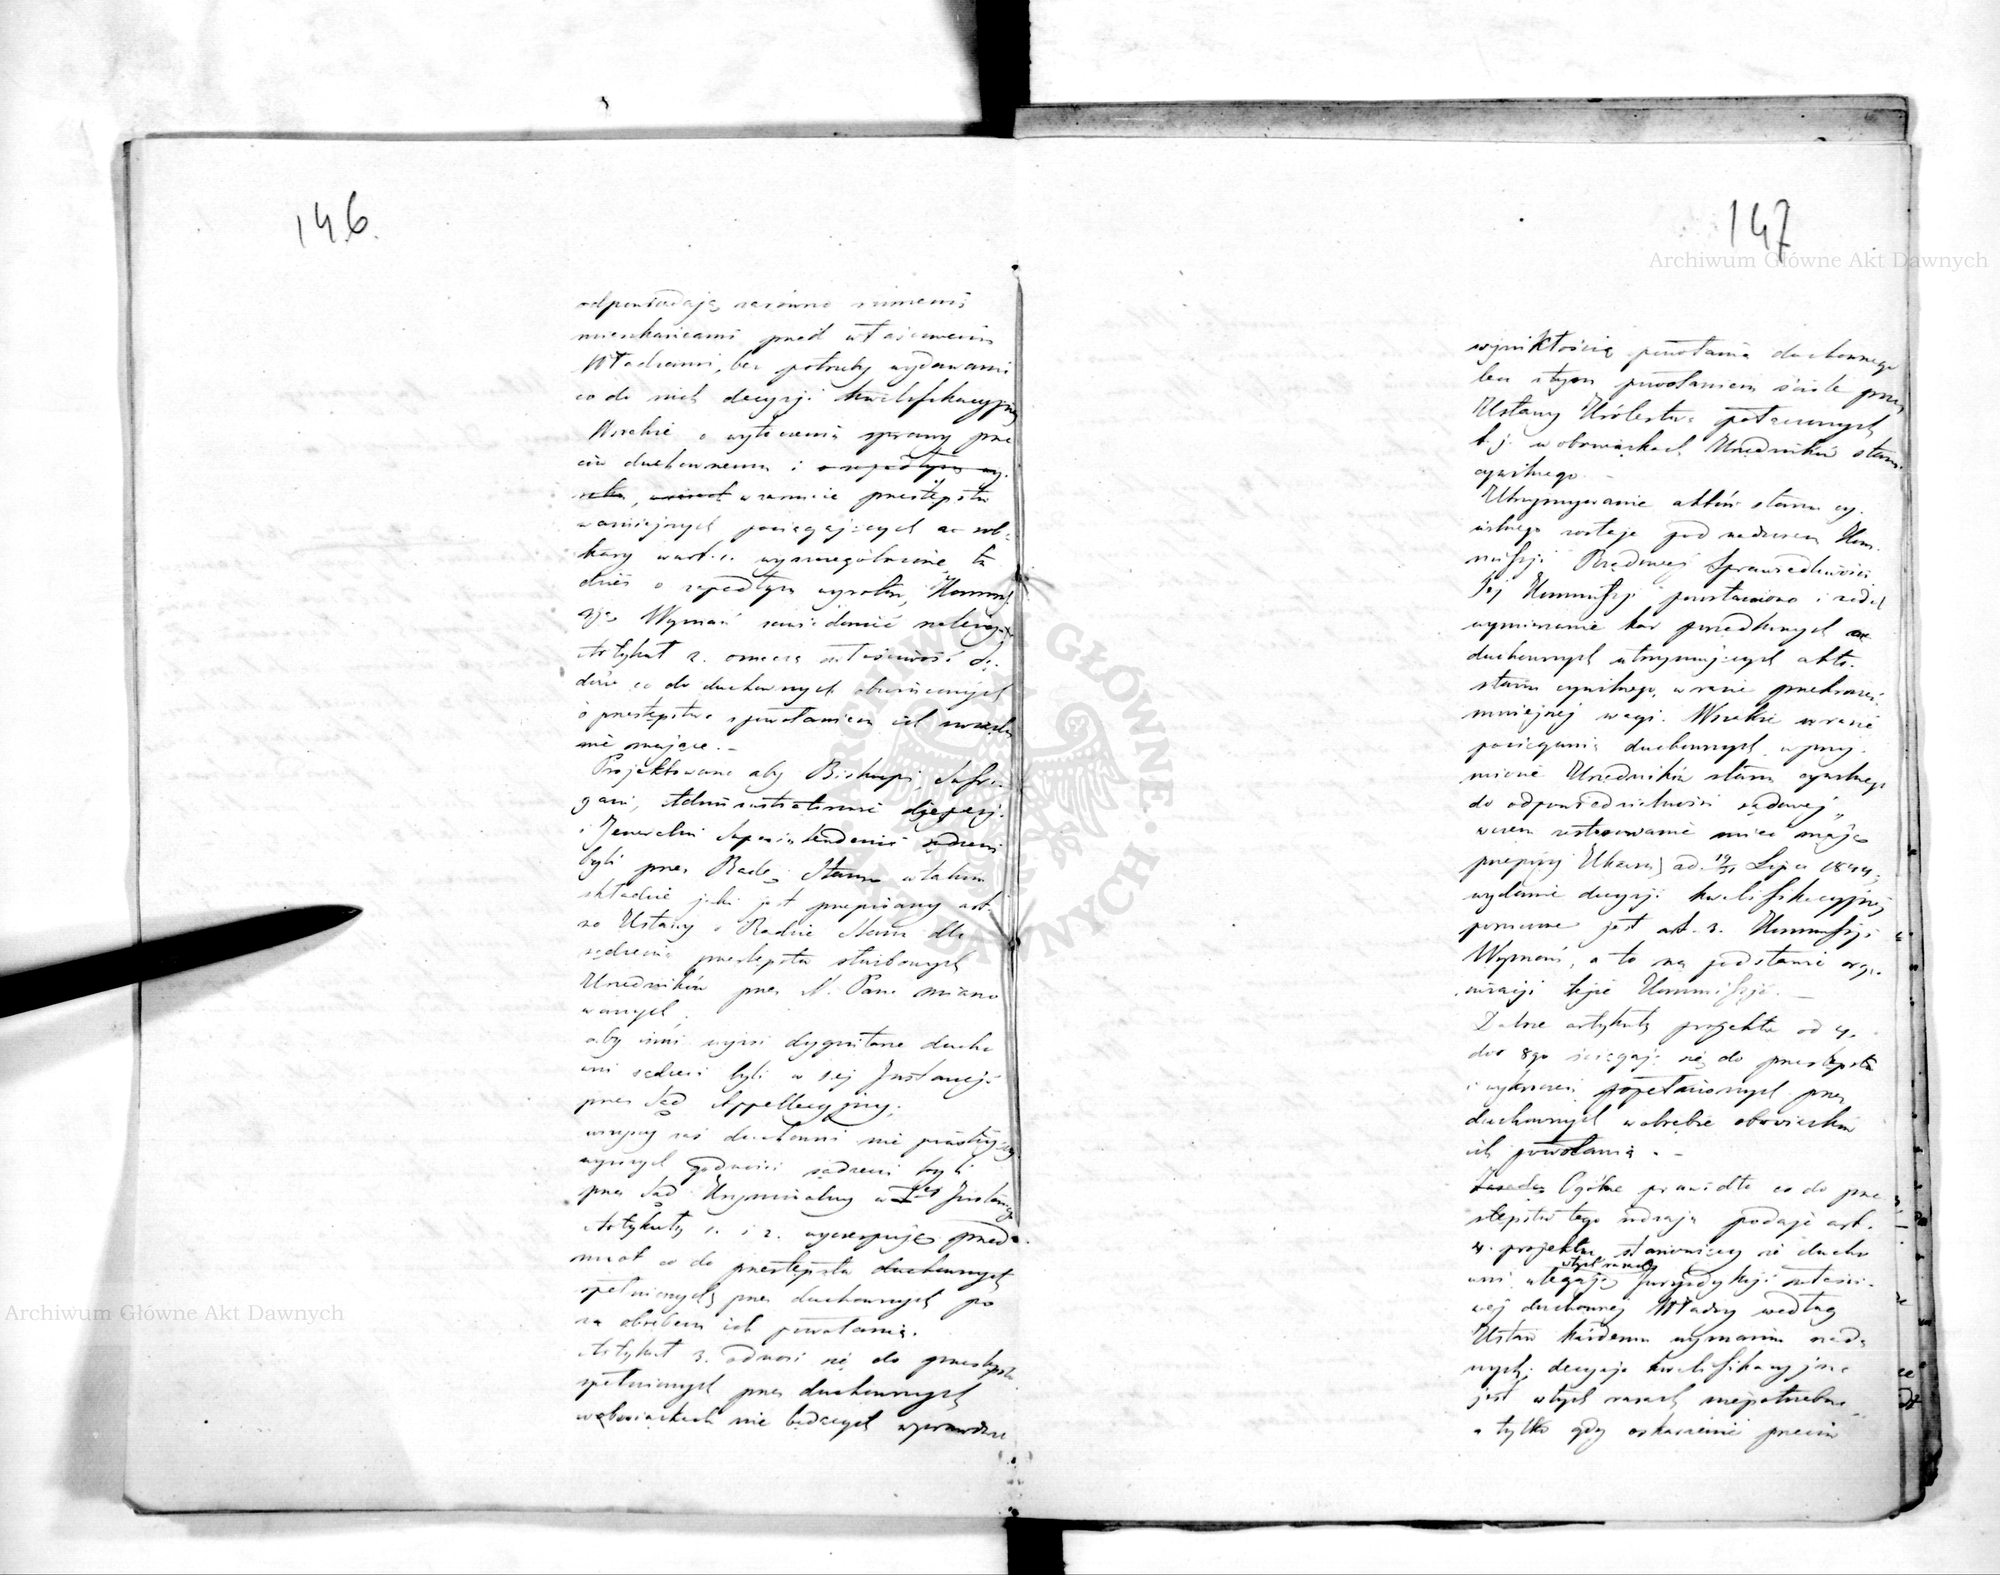 146.
odpowiadają zarówno z innemi
mieszkańcami przed właściwemi
Władzami, bez potrzeby wydawania
co do nich decyzji kwalifikacyjnej
Wszakże o wytoczeniu sprawy prze
ciw duchownemu i o zapadłym wy-
roku, w razie przestępstw
ważniejszych pociągających za sobą
kary w art. 1. wyszczególnione, tu
dzież o zapadłym wyroku, Kommis
sję Wyznań zawiadomić należy.
Artykuł 2. oznacza właściwość są-
dów co do duchownych obwinionych
o przestępstwa z powołaniem ich związku
nie mające. –
Projektowano aby Biskupi, Sufra-
gani, Administratorowie dyecezji
i Jeneralni Superintendenci sądzeni
byli przez Radę Stanu w takim
składzie jaki jest przepisany art.
20 Ustawy o Radzie Stanu dla
sądzenia przestępstw służbowych
Urzędników przez N. Pana miano
wanych,
aby inni wyżsi dygnitarze ducho
wni sądzeni byli w 1ej Instancji
przez Sąd Appellacyjny;
wszyscy zaś duchowni nie piastujący
wyższych godności sądzeni byli
przez Sąd Kryminalny w Iej Instancji
Artykuły 1. i 2. wyczerpują przed
miot co do przestępstw duchownych
spełnionych przez duchownych po
za obrębem ich powołania.
Artykuł 3. odnosi się do przestępstw
spełnionych przez duchownych
w obowiązkach nie będących wprawdzie
147
wynikłością powołania duchownego
lecz z tym powołaniem ściśle przez
Ustawy Królestwa połączonych
t. j. w obowiązkach Urzędników stanu
cywilnego. –
Utrzymywanie aktów stanu cy-
wilnego zostaje pod nadzorem Kom-
missji Rządowej Sprawiedliwości
Tej Kommissji pozostawiono i nadal
wymierzanie kar przeciwko
duchownych utrzymujących akta
stanu cywilnego, w razie przekroczeń
mniejszej wagi. Wszakże w razie
pociągania duchownych w przy-
miocie Urzędników stanu cywilnego
do odpowiedzialności sądowej,
w czem zastosowanie mieć mają
przepisy Ukazu od 19/31 Lipca 1844,
wydanie decyzji kwalifikacyjnej
poruczone jest art. 3. Kommissji
Wyznań, a to na podstawie orga-
nizacji tejże Kommissji. –
Dalsze artykuły projektu od 4.
do 8go ściągają się do przestępstw
i wykroczeń popełnionych przez
duchownych w obrębie obowiązków
ich powołania. –
Zasadę Ogólne prawidło co do prze
stępstw tego rodzaju podaje art.
4. projektu stanowiący że ducho
wni w tych razach ulegają Juryzdykcji właści-
wej duchownej Władzy według
Ustaw każdemu wyznaniu nada
nych; decyzja kwalifikacyjna
jest w tych razach niepotrzebna,
a tylko gdy oskarżenie przeciw
Archiwum Główne Akt Dawnych
Archiwum Główne Akt Dawnych